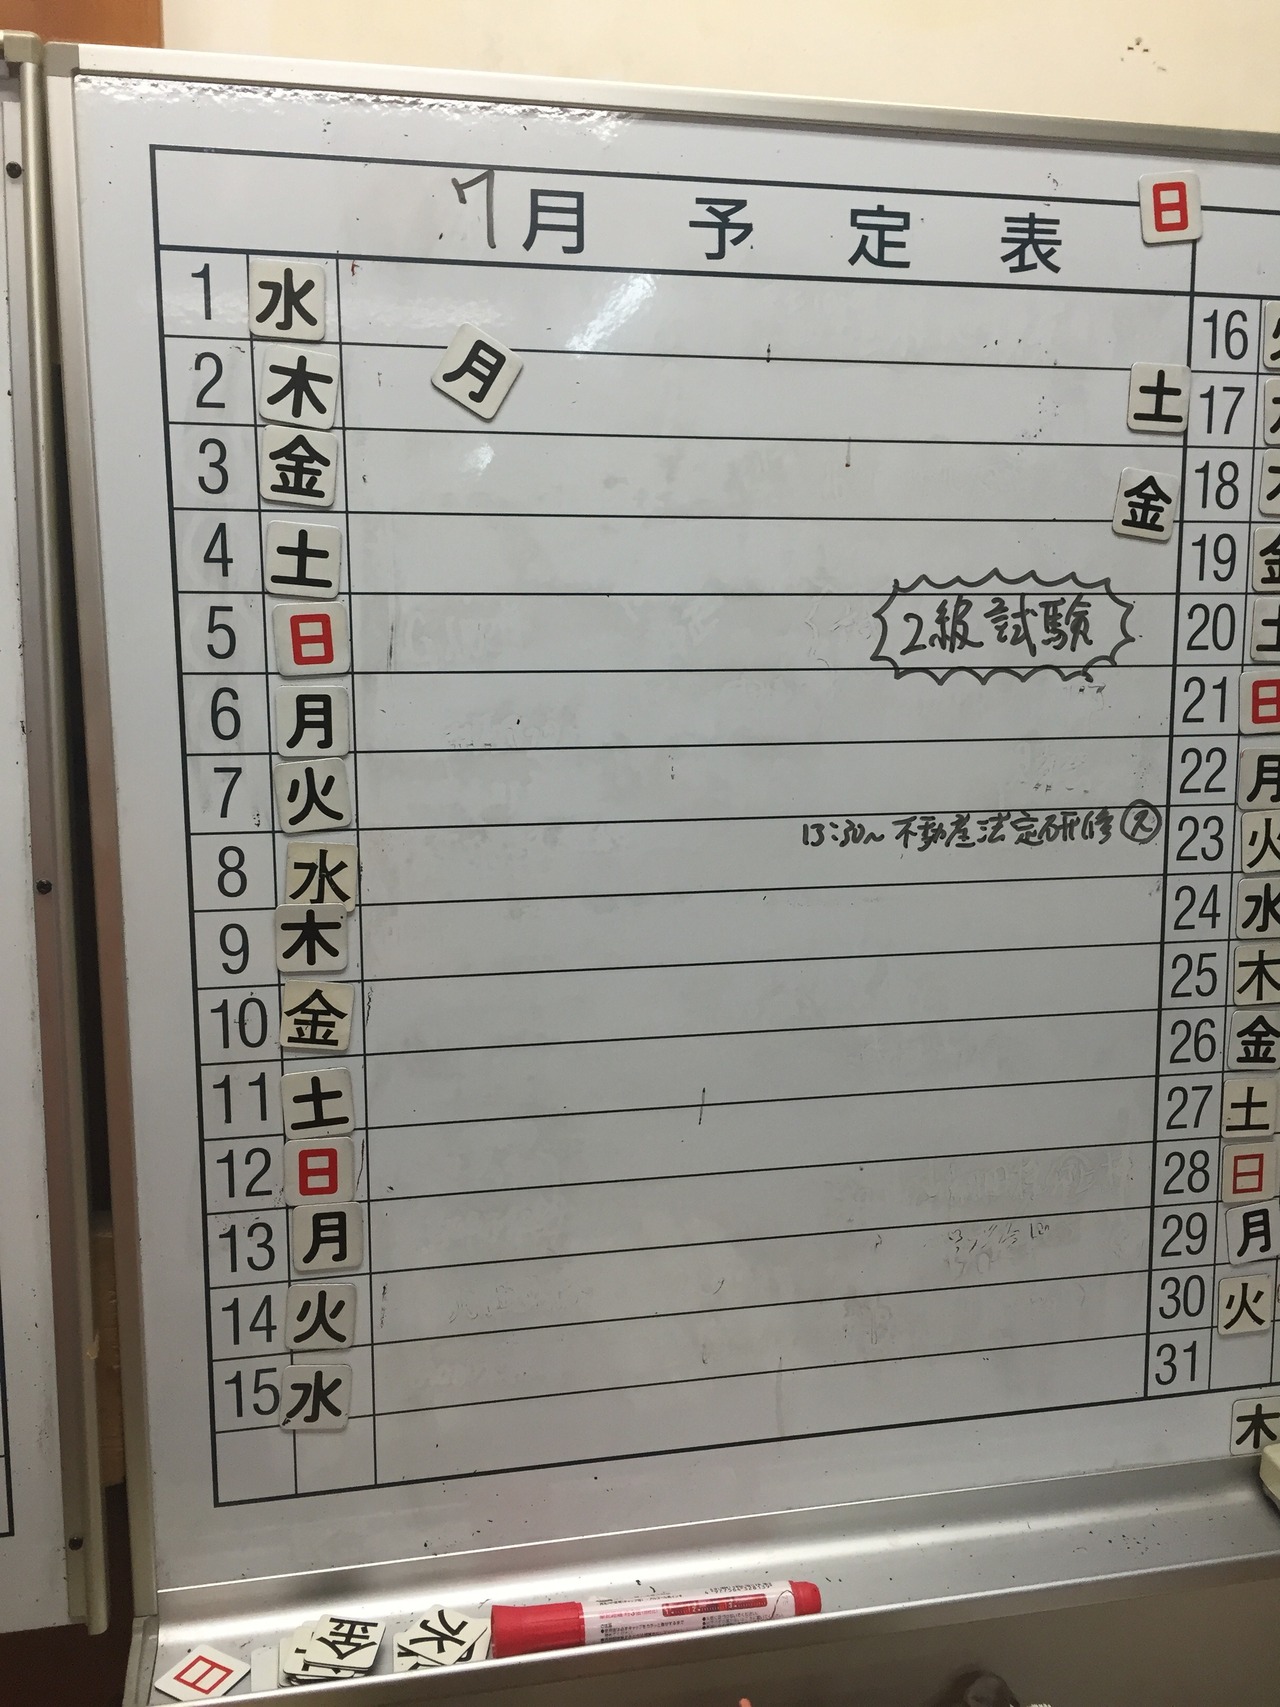 7月 予定表
日
1 水
2 木 月
土
3 金
金
4 土
5 日 2級試験
6 月
7 火
8 水 13:30~ 不動産法定研修
9 木
10 金
11 土
12 日
13 月
14 火
15 水
16
17
18
19 金
20 土
21 日
22 月
23 火
24 水
25 木
26 金
27 土
28 日
29 月
30 火
31
木
日
金
水